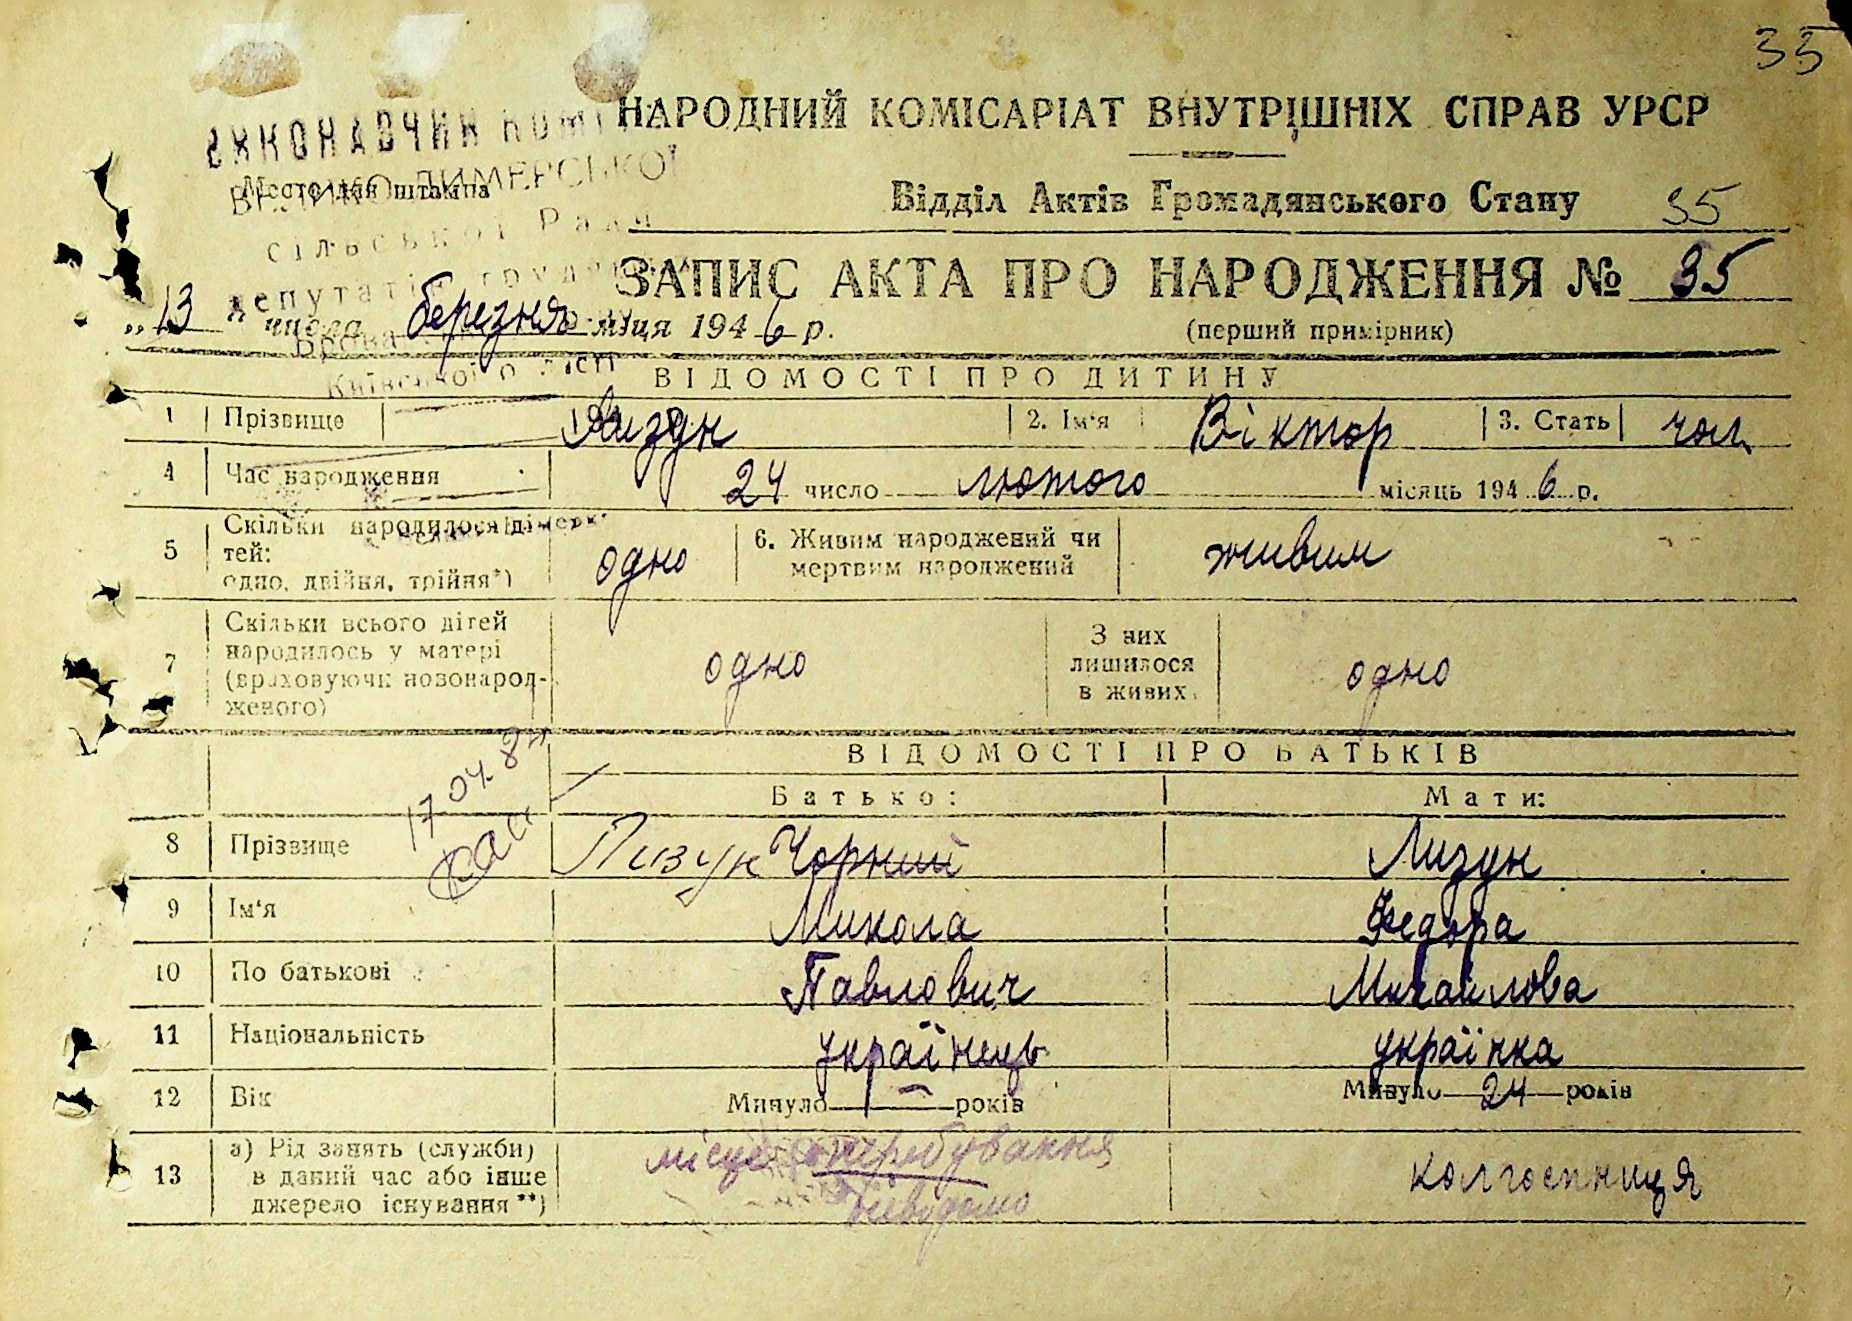 35
НАРОДНИЙ КОМІСАРІАТ ВНУТРІШНІХ СПРАВ УРСР
ВИКОНАВЧИЙ КОМІТЕТ
Місце для штампа
ВЕЛИКО-ДИМЕРСЬКОЇ
Відділ Актів Громадянського Стану 35
сільської Ради
депутатів трудящих
ЗАПИС АКТА ПРО НАРОДЖЕННЯ № 35
„13" числа березня м-ця 1946 р.
(перший примірник)
Київської області
ВІДОМОСТІ ПРО ДИТИНУ
1 Прізвище Лизун 2. Ім'я Віктор 3. Стать чол.
4 Час народження 24 число лютого місяць 1946 р.
5 Скільки народилося дітей: одно, двійня, трійня*) одно 6. Живим народжений чи мертвим народжений живим
7 Скільки всього дітей народилось у матері (враховуючи новонародженого) одно З них лишилося в живих одно
ВІДОМОСТІ ПРО БАТЬКІВ
17.04.8
Батько: Мати:
8 Прізвище Лизун Чорний Лизун
9 Ім'я Микола Федора
10 По батькові Павлович Михайлова
11 Національність українець українка
12 Вік Минуло — років Минуло 24 років
13 а) Рід занять (служби) в даний час або інше джерело існування**) місце перебування невідомо колгоспниця